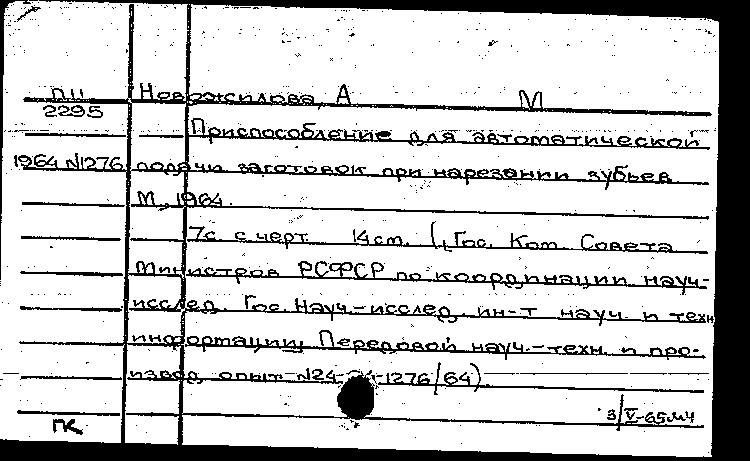 ПЦ Новожилова, А М
2295
Приспособление для автоматической
1964 N1276 подачи заготовок при нарезании зубьев
М, 1964.
7с. с черт. 14 см. (Гос. Ком. Совета
Министров РСФСР по координации науч-
исслед. Гос. науч.-исслед. ин-т науч. и техн
информации. Передовой науч.-техн. и про-
извод. опыт N24-1276/64).
3/V-65
ПК